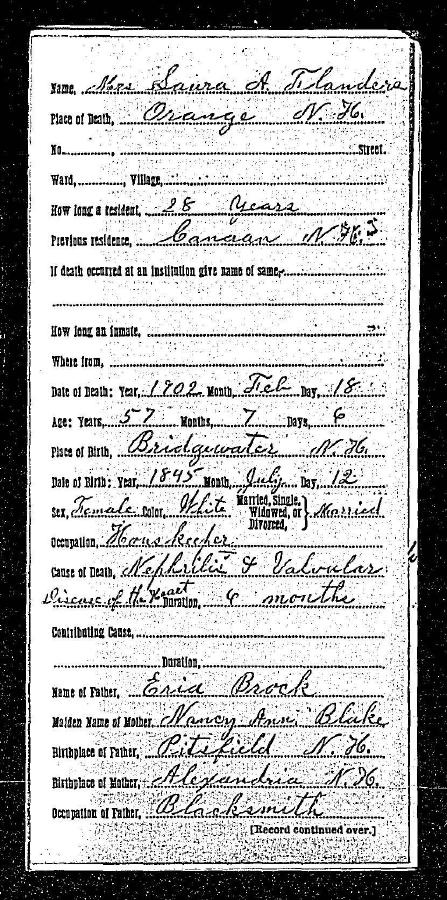 Name, Mrs Laura A. Flanders
Place of Death, Orange N. H.
No. , Street.
Ward, , Village,
How long a resident, 28 Years
Previous residence, Canaan N. H.
If death occurred at an institution give name of same,
How long an inmate,
Where from,
Date of Death: Year, 1902 Month, Feb Day, 18
Age: Years, 57 Months, 7 Days, 6
Place of Birth, Bridgewater N. H.
Date of Birth: Year, 1845 Month, July Day, 12
Sex, Female Color, White Married, Single, Widowed, or Divorced, } Married
Occupation, Housekeeper
Cause of Death, Nephritis & Valvular
Disease of the Heart Duration, 6 months
Contributing Cause,
Duration,
Name of Father, Brock
Maiden Name of Mother, Nancy Ann Blake
Birthplace of Father, Pittsfield N. H.
Birthplace of Mother, Alexandria N. H.
Occupation of Father, Blacksmith
[Record continued over.]